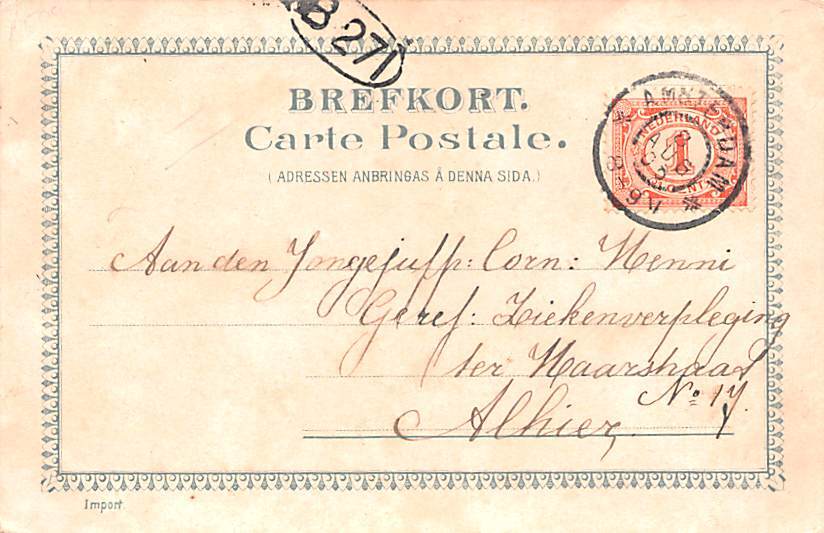 B 271
BREFKORT.
Carte Postale.
(ADRESSEN ANBRINGAS Å DENNA SIDA.)
AMSTERDAM
NEDERLAND
1
CENT
Aan den Jongejuffr: Corn: Menni
Geref: Ziekenverpleging
ter Haarstraat
No 17.
Alhier,
Import.